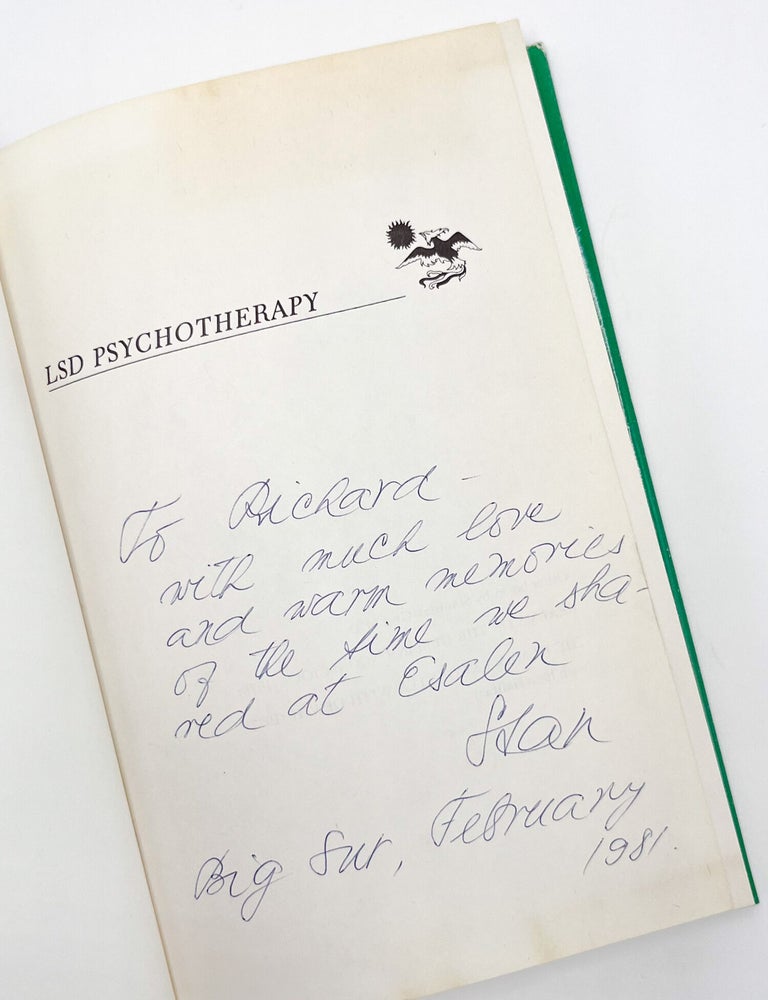 LSD PSYCHOTHERAPY
To Richard –
with much love
and warm memories
of the time we sha-
red at Esalen
Stan
Big Sur, February
1981.